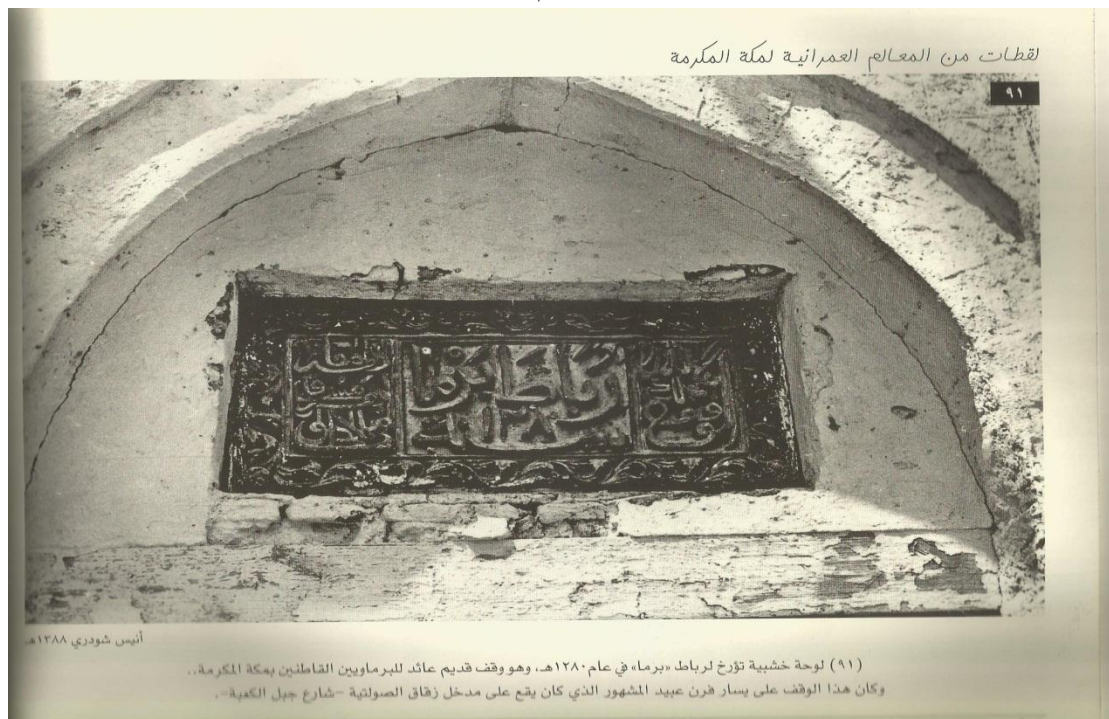 لقطات من المعالم العمرانية لمكة المكرمة
٩١
رباط برما
سنة ١٢٨٠
أنيس شودري ١٣٨٨هـ
(٩١) لوحة خشبية تؤرخ لرباط «برما» في عام ١٢٨٠هـ، وهو وقف قديم عائد للبرماويين القاطنين بمكة المكرمة..
وكان هذا الوقف على يسار فرن عبيد المشهور الذي كان يقع على مدخل زقاق الصولتية -شارع جبل الكعبة-.